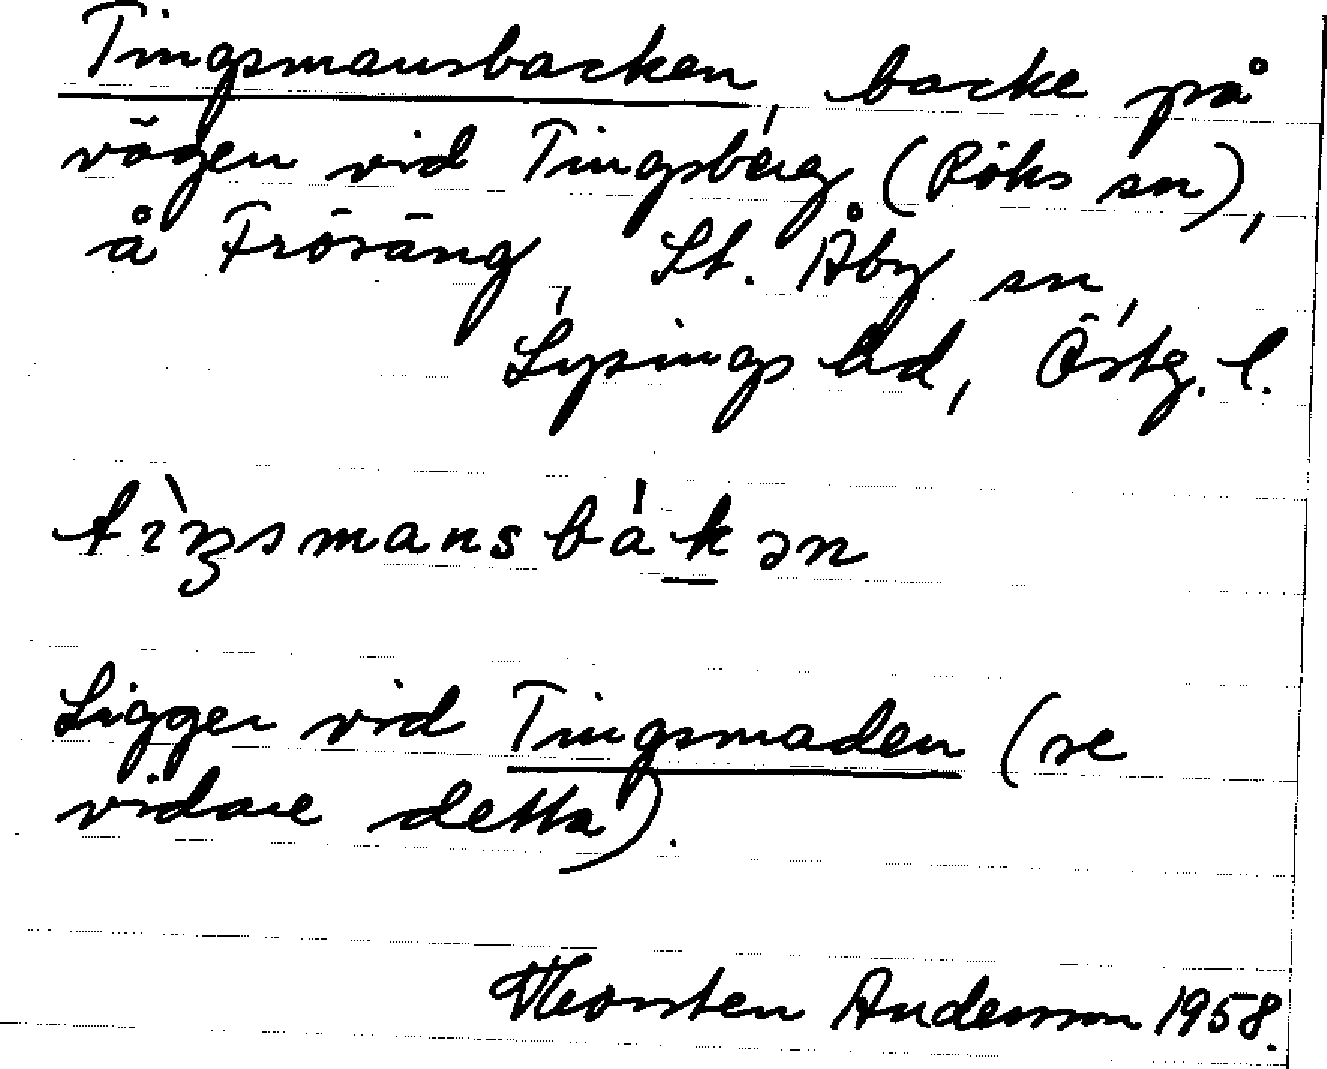 Tingsmansbacken, backe på
vägen vid Tingsberg (Röks sn),
å Frösäng, St. Åby sn,
Lysings hd, Östg. l.
tìŋsmansbákən
Ligger vid Tingsmaden (se
vidare detta).
Thorsten Andersson 1958.